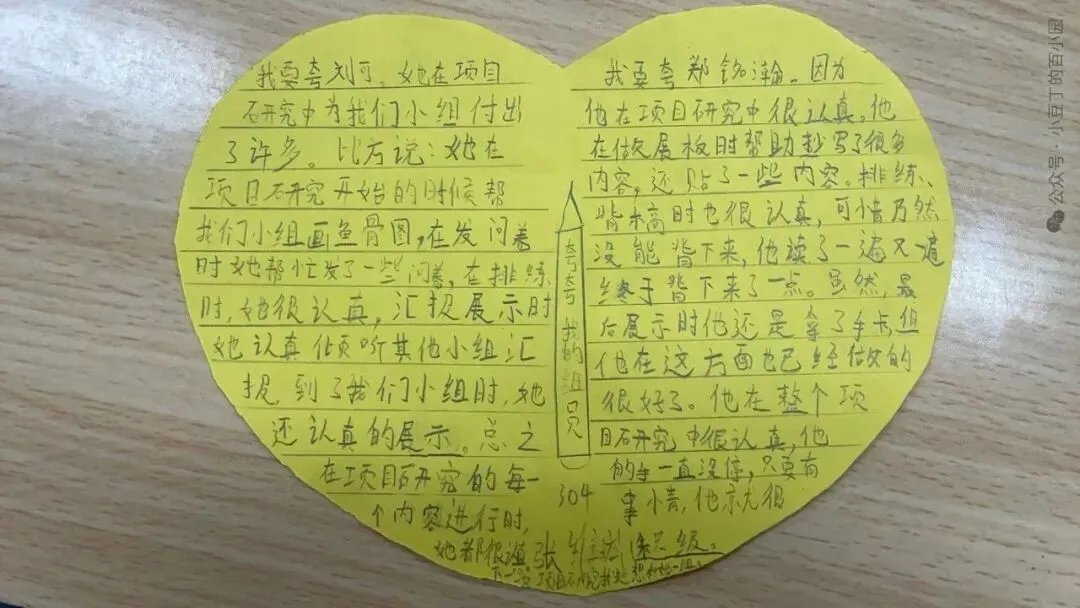 我要夸刘可。她在项目
研究中为我们小组付出
了许多。比方说：她在
项目研究开始的时候帮
我们小组画鱼骨图，在发问卷
时她帮忙发了一些问卷，在排练
时，她很认真，汇报展示时
她认真倾听其他小组汇
报，到了我们小组时，她
还认真的展示。总之
在项目研究的每一
个内容进行时，
她都很
夸夸我的组员
304
我要夸郑铭瀚。因为
他在项目研究中很认真。他
在做展板时帮助抄写了很多
内容，还贴了一些内容。排练、
背稿时也很认真，可惜乃然
没能背下来，他读了一遍又一遍
终于背下来了一点。虽然，最
后展示时他还是拿了手卡但
他在这方面也已经做的
很好了。他在整个项
目研究中很认真，他
的手一直没停，只要有
事情，他就很
积级。
张
下一次项目研究我还想和她一组。
公众号·小豆丁的百小园